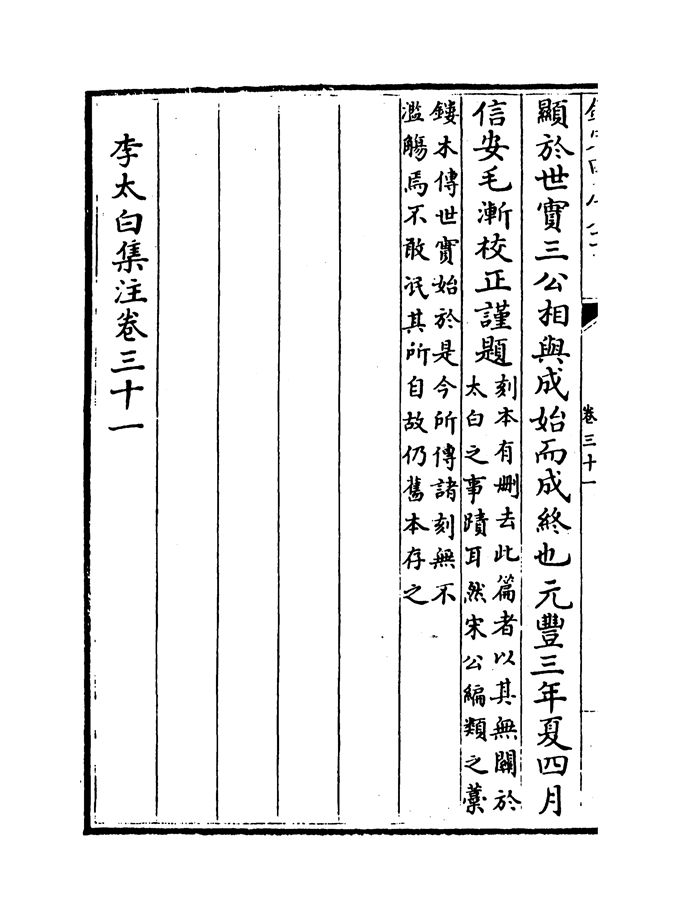 卷三十一
顯於世實三公相與成始而成終也元豐三年夏四月
信安毛漸校正謹題
刻本有删去此篇者以其無闗於
太白之事蹟耳然宋公編類之藁
鏤木傳世實始於是今所傳諸刻無不
濫觴焉不敢泯其所自故仍舊本存之
李太白集注卷三十一